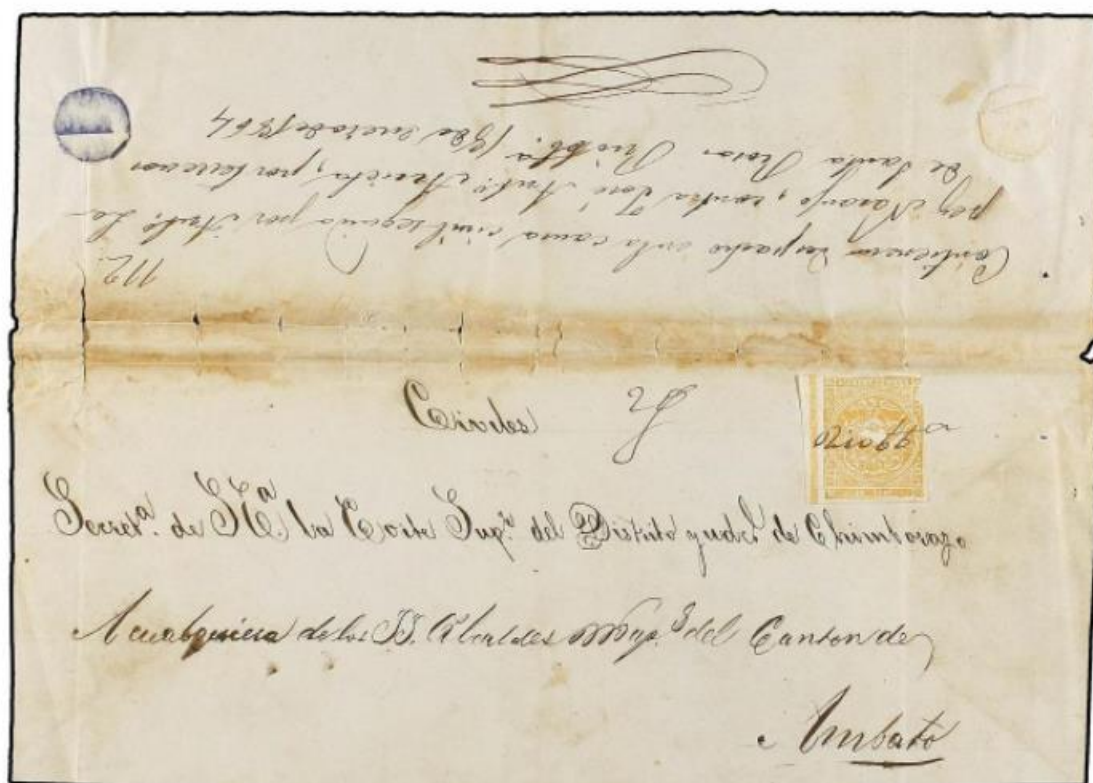 Contiene un despacho en la causa civil seguida por Anto. Lo-
pez Naranjo, contra José Anto. Acosta, por terrenos
de Santa Rosa. Riobba. 18 de enero de 1864
112
Civiles
Secreta. de S.E.a la Corte Supr. del Distrito judcl. de Chimborazo
A cualquiera de los SS. Alcaldes Mups. del Canton de
Ambato